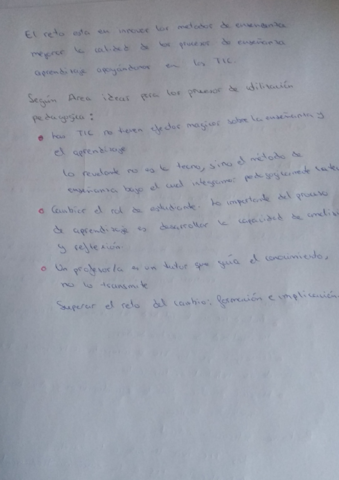 El reto está en innovar los métodos de enseñanza
mejorar la calidad de los procesos de enseñanza
aprendizaje apoyándonos en las TIC.
Según Area ideas para los procesos de utilización
pedagógica:
Las TIC no tienen efectos mágicos sobre la enseñanza y
el aprendizaje
Lo relevante no es la tecno, sino el método de
enseñanza bajo el cual integramos pedagógicamente
Cambiar el rol de estudiante. Lo importante del proceso
de aprendizaje es desarrollar la capacidad de
y reflexión
Un profesor/a es un tutor que guía el conocimiento,
no lo transmite
Superar el reto del cambio: formación e implicación